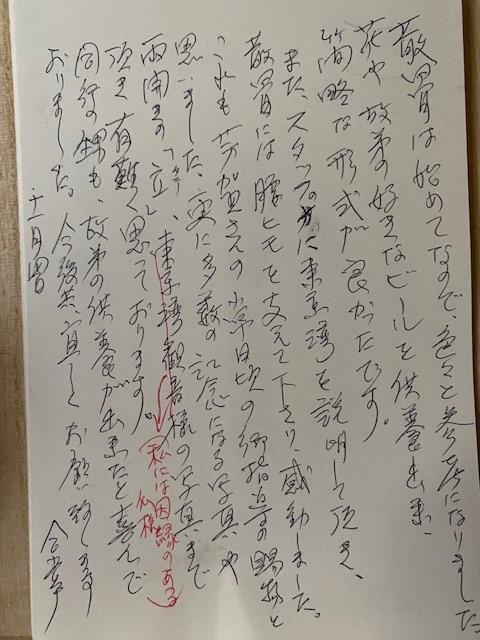 散骨は始めてなので、色々と参考になりました。
花や故弟の好きなビールを供養出来、
簡略な形式が良かったです。
また、スタッフの方に東京湾を説明して頂き、
散骨には腰ヒモを支えて下さり、感動しました。
これも芳賀さんの常日頃の御指導の賜物と
思いました。更に多数の記念になる写真や
両開きの「立て」、東京湾観音様の写真まで
(私には因縁のある
仏様)
頂き有難く思っております。
同行の甥も、故弟の供養が出来たと喜んで
おりました。今後共宜しくお願い致します
合掌
十一月